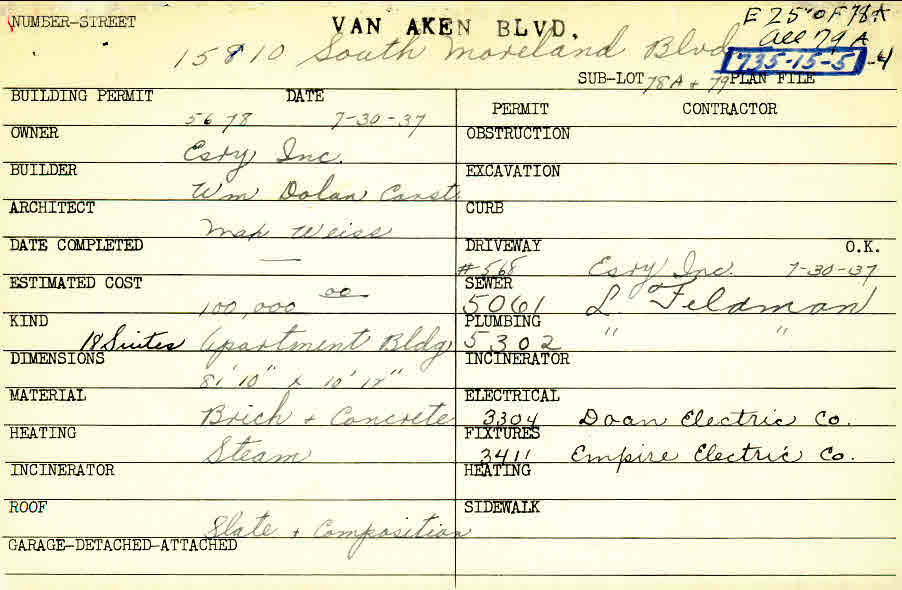 NUMBER-STREET VAN AKEN BLVD. E 25' OF 78A
15810 South Moreland Blvd all 79A
735-15-5-4
SUB-LOT 78A + 79 PLAN FILE
BUILDING PERMIT DATE PERMIT CONTRACTOR
5678 7-30-37
OWNER Esry Inc. OBSTRUCTION
BUILDER Wm Dolan Const EXCAVATION
ARCHITECT Max Weiss CURB
DATE COMPLETED — DRIVEWAY O.K.
#568 Esry Inc. 7-30-37
ESTIMATED COST 100,000 00 SEWER
5061 L. Feldman
KIND 18 Suites Apartment Bldg PLUMBING
5302 " "
DIMENSIONS INCINERATOR
81' 10" x
MATERIAL Brick + Concrete ELECTRICAL
3304 Doan Electric Co.
HEATING Steam FIXTURES
3411 Empire Electric Co.
INCINERATOR HEATING
ROOF Slate + Composition SIDEWALK
GARAGE-DETACHED-ATTACHED